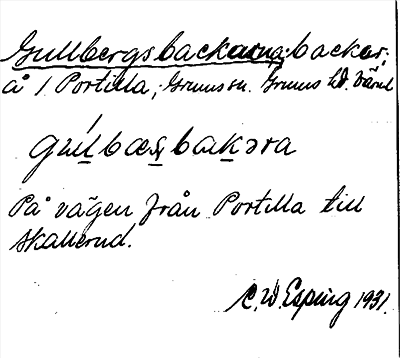 Gullbergsbackarna; backar;
å 1 Portilla, Grums sn. Grums hd. Värml
På vägen från Portilla till
Skallerud.
C. W. Esping 1931.